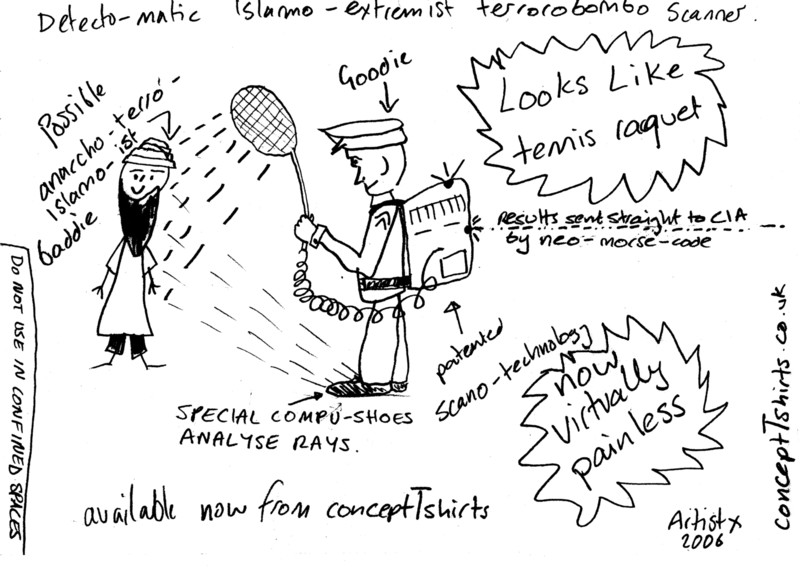 Detecto-matic Islamo-extremist terrorobombo Scanner.
Possible
anarcho-terro-
Islamo-ist
baddie
Goodie
Looks Like
tennis raquet
results sent straight to CIA
by neo-morse-code
patented
scano-technology
now
virtually
painless
SPECIAL COMPU-SHOES
ANALYSE RAYS.
available now from conceptTshirts
Artist x
2006
DO NOT USE IN CONFINED SPACES
conceptTshirts.co.uk